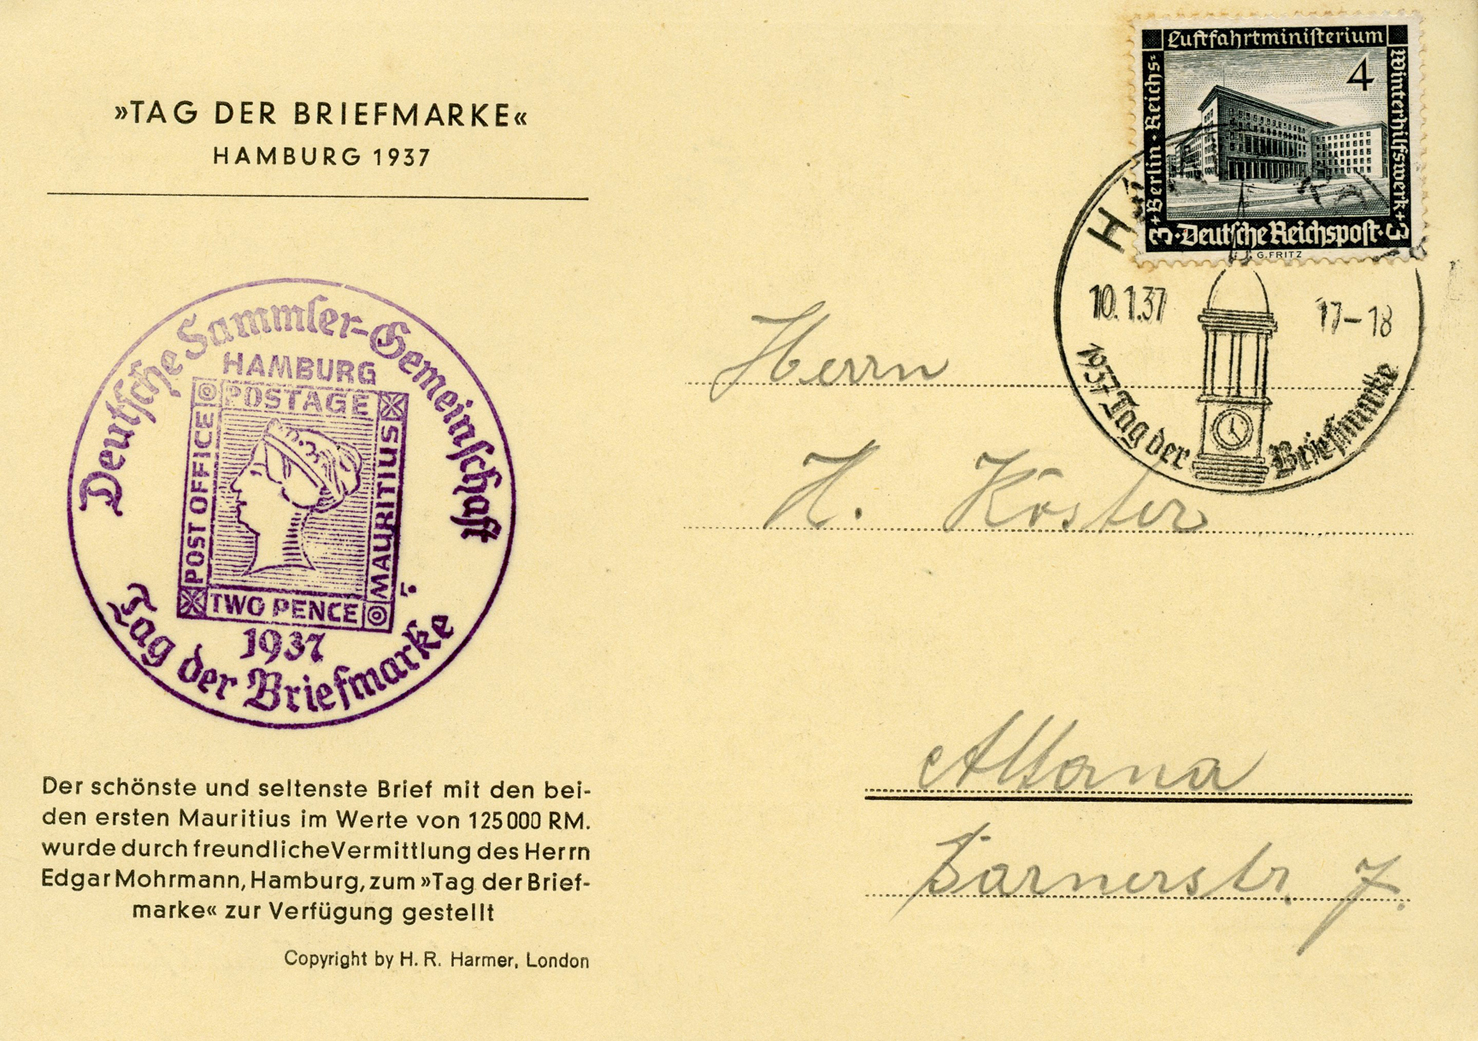 »TAG DER BRIEFMARKE«
HAMBURG 1937
Deutsche Sammler-Gemeinschaft
HAMBURG
POSTAGE
POST OFFICE
MAURITIUS
TWO PENCE
1937
Tag der Briefmarke
Der schönste und seltenste Brief mit den bei-
den ersten Mauritius im Werte von 125000 RM.
wurde durch freundliche Vermittlung des Herrn
Edgar Mohrmann, Hamburg, zum »Tag der Brief-
marke« zur Verfügung gestellt
Copyright by H. R. Harmer, London
Luftfahrtministerium
4
Berlin · Reichs-
Winterhilfswerk
3 · Deutsche Reichspost · 3
G. FRITZ
10.1.37
17-18
1937 Tag der Briefmarke
Herrn
H. Köster
Altona
7.